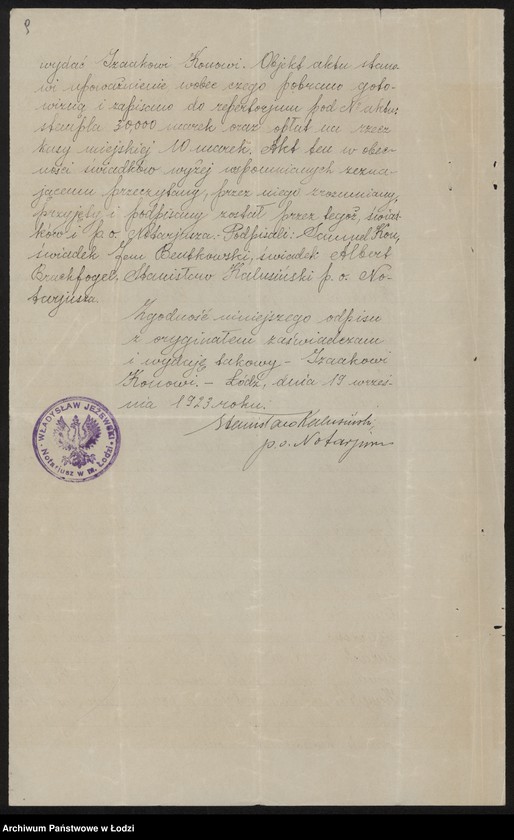 9
wydać Izaakowi Konowi. Objekt aktu stano-
wi upoważnienie wobec czego pobrano goto-
wizną i zapisano do repertorjum pod № aktu:
stempla 30,000 marek oraz opłat na rzecz
kasy miejskiej 10 marek. Akt ten w obec-
ności świadków wyżej wspomnianych zezna-
jącemu przeczytany, przez niego zrozumiany,
przyjęty i podpisany został przez tegoż, świad-
ków i p.o. Notarjusza. Podpisali: Samuel Kon,
świadek Jan Bentkowski, świadek Albert
Brachfogel, Stanisław Kalusiński p.o. No-
tarjusza.
Zgodność niniejszego odpisu
z oryginałem zaświadczam
i wydaję takowy - Izaakowi
Konowi. - Łódź, dnia 19 wrześ-
nia 1923 roku.
Stanisław Kalusiński
p.o. Notarjusza
WŁADYSŁAW JEŻEWSKI
Notariusz w m. Łodzi
Archiwum Państwowe w Łodzi